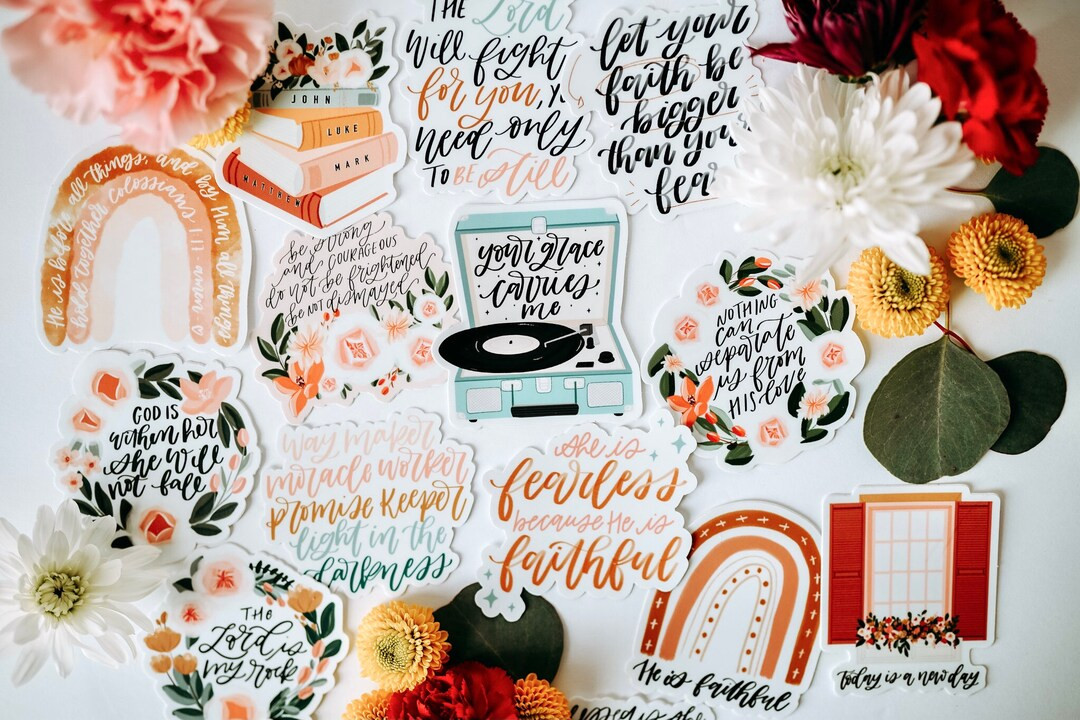 THE Lord
Will fight
for you, 
need only
TO BE still
let your
faith be
bigger
than your
fear
JOHN
LUKE
MARK
MATTHEW
He is before all things, and by Him all things
hold together colossians 1:17
be strong
and COURAGEOUS
do not be frightened
be not dismayed
your grace
carries
me
NOTHING
can
separate
us from
HIS love
GOD IS
within her
she will
not fall
way maker
miracle worker
promise keeper
light in the
darkness
she is
fearless
because He is
faithful
THE
Lord is
my rock
He is faithful
Today is a new day